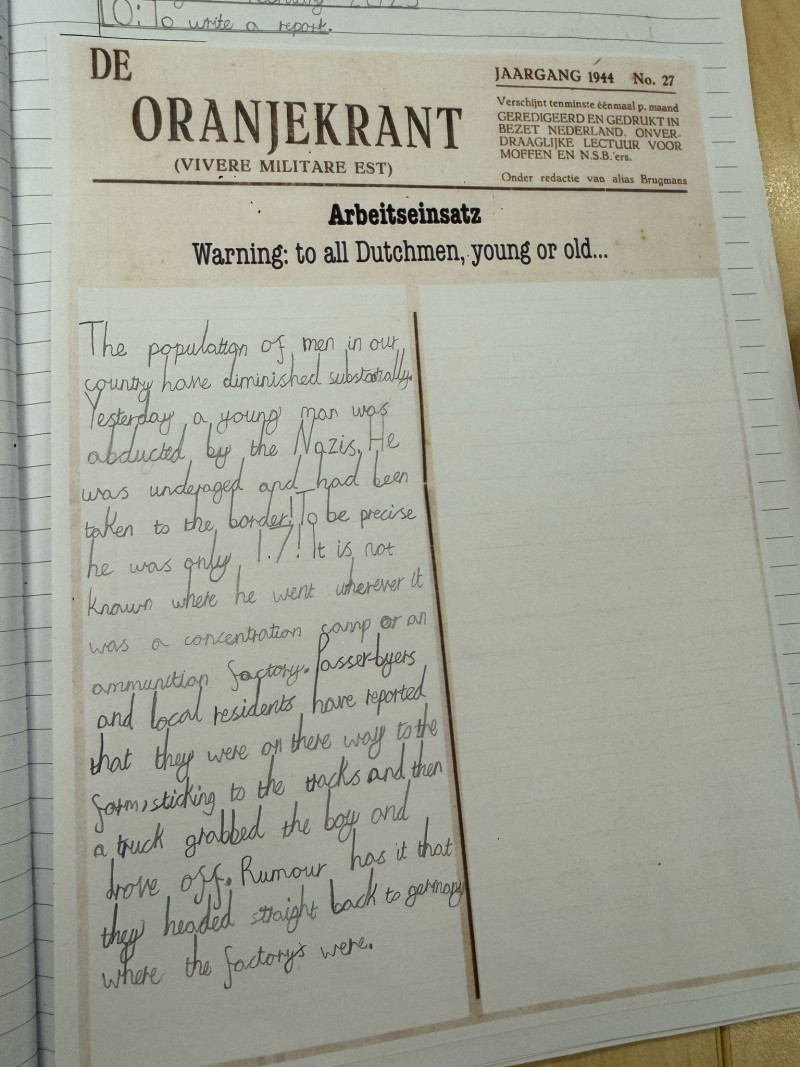 LO: To write a report.
DE
ORANJEKRANT
(VIVERE MILITARE EST)
JAARGANG 1944 No. 27
Verschijnt tenminste éénmaal p. maand
GEREDIGEERD EN GEDRUKT IN
BEZET NEDERLAND. ONVER-
DRAAGLIJKE LECTUUR VOOR
MOFFEN EN N.S.B.'ers.
Onder redactie van alias Brugmans
Arbeitseinsatz
Warning: to all Dutchmen, young or old...
The population of men in our
country have diminished substantially.
Yesterday a young man was
abducted by the Nazis. He
was underaged and had been
taken to the border! To be precise
he was only 17! It is not
known where he went wherever it
was a concentration camp or an
ammunition factory. Passer-byers
and local residents have reported
that they were on there way to the
farm, sticking to the tracks and then
a truck grabbed the boy and
drove off. Rumour has it that
they headed straight back to germany
where the factory's were.